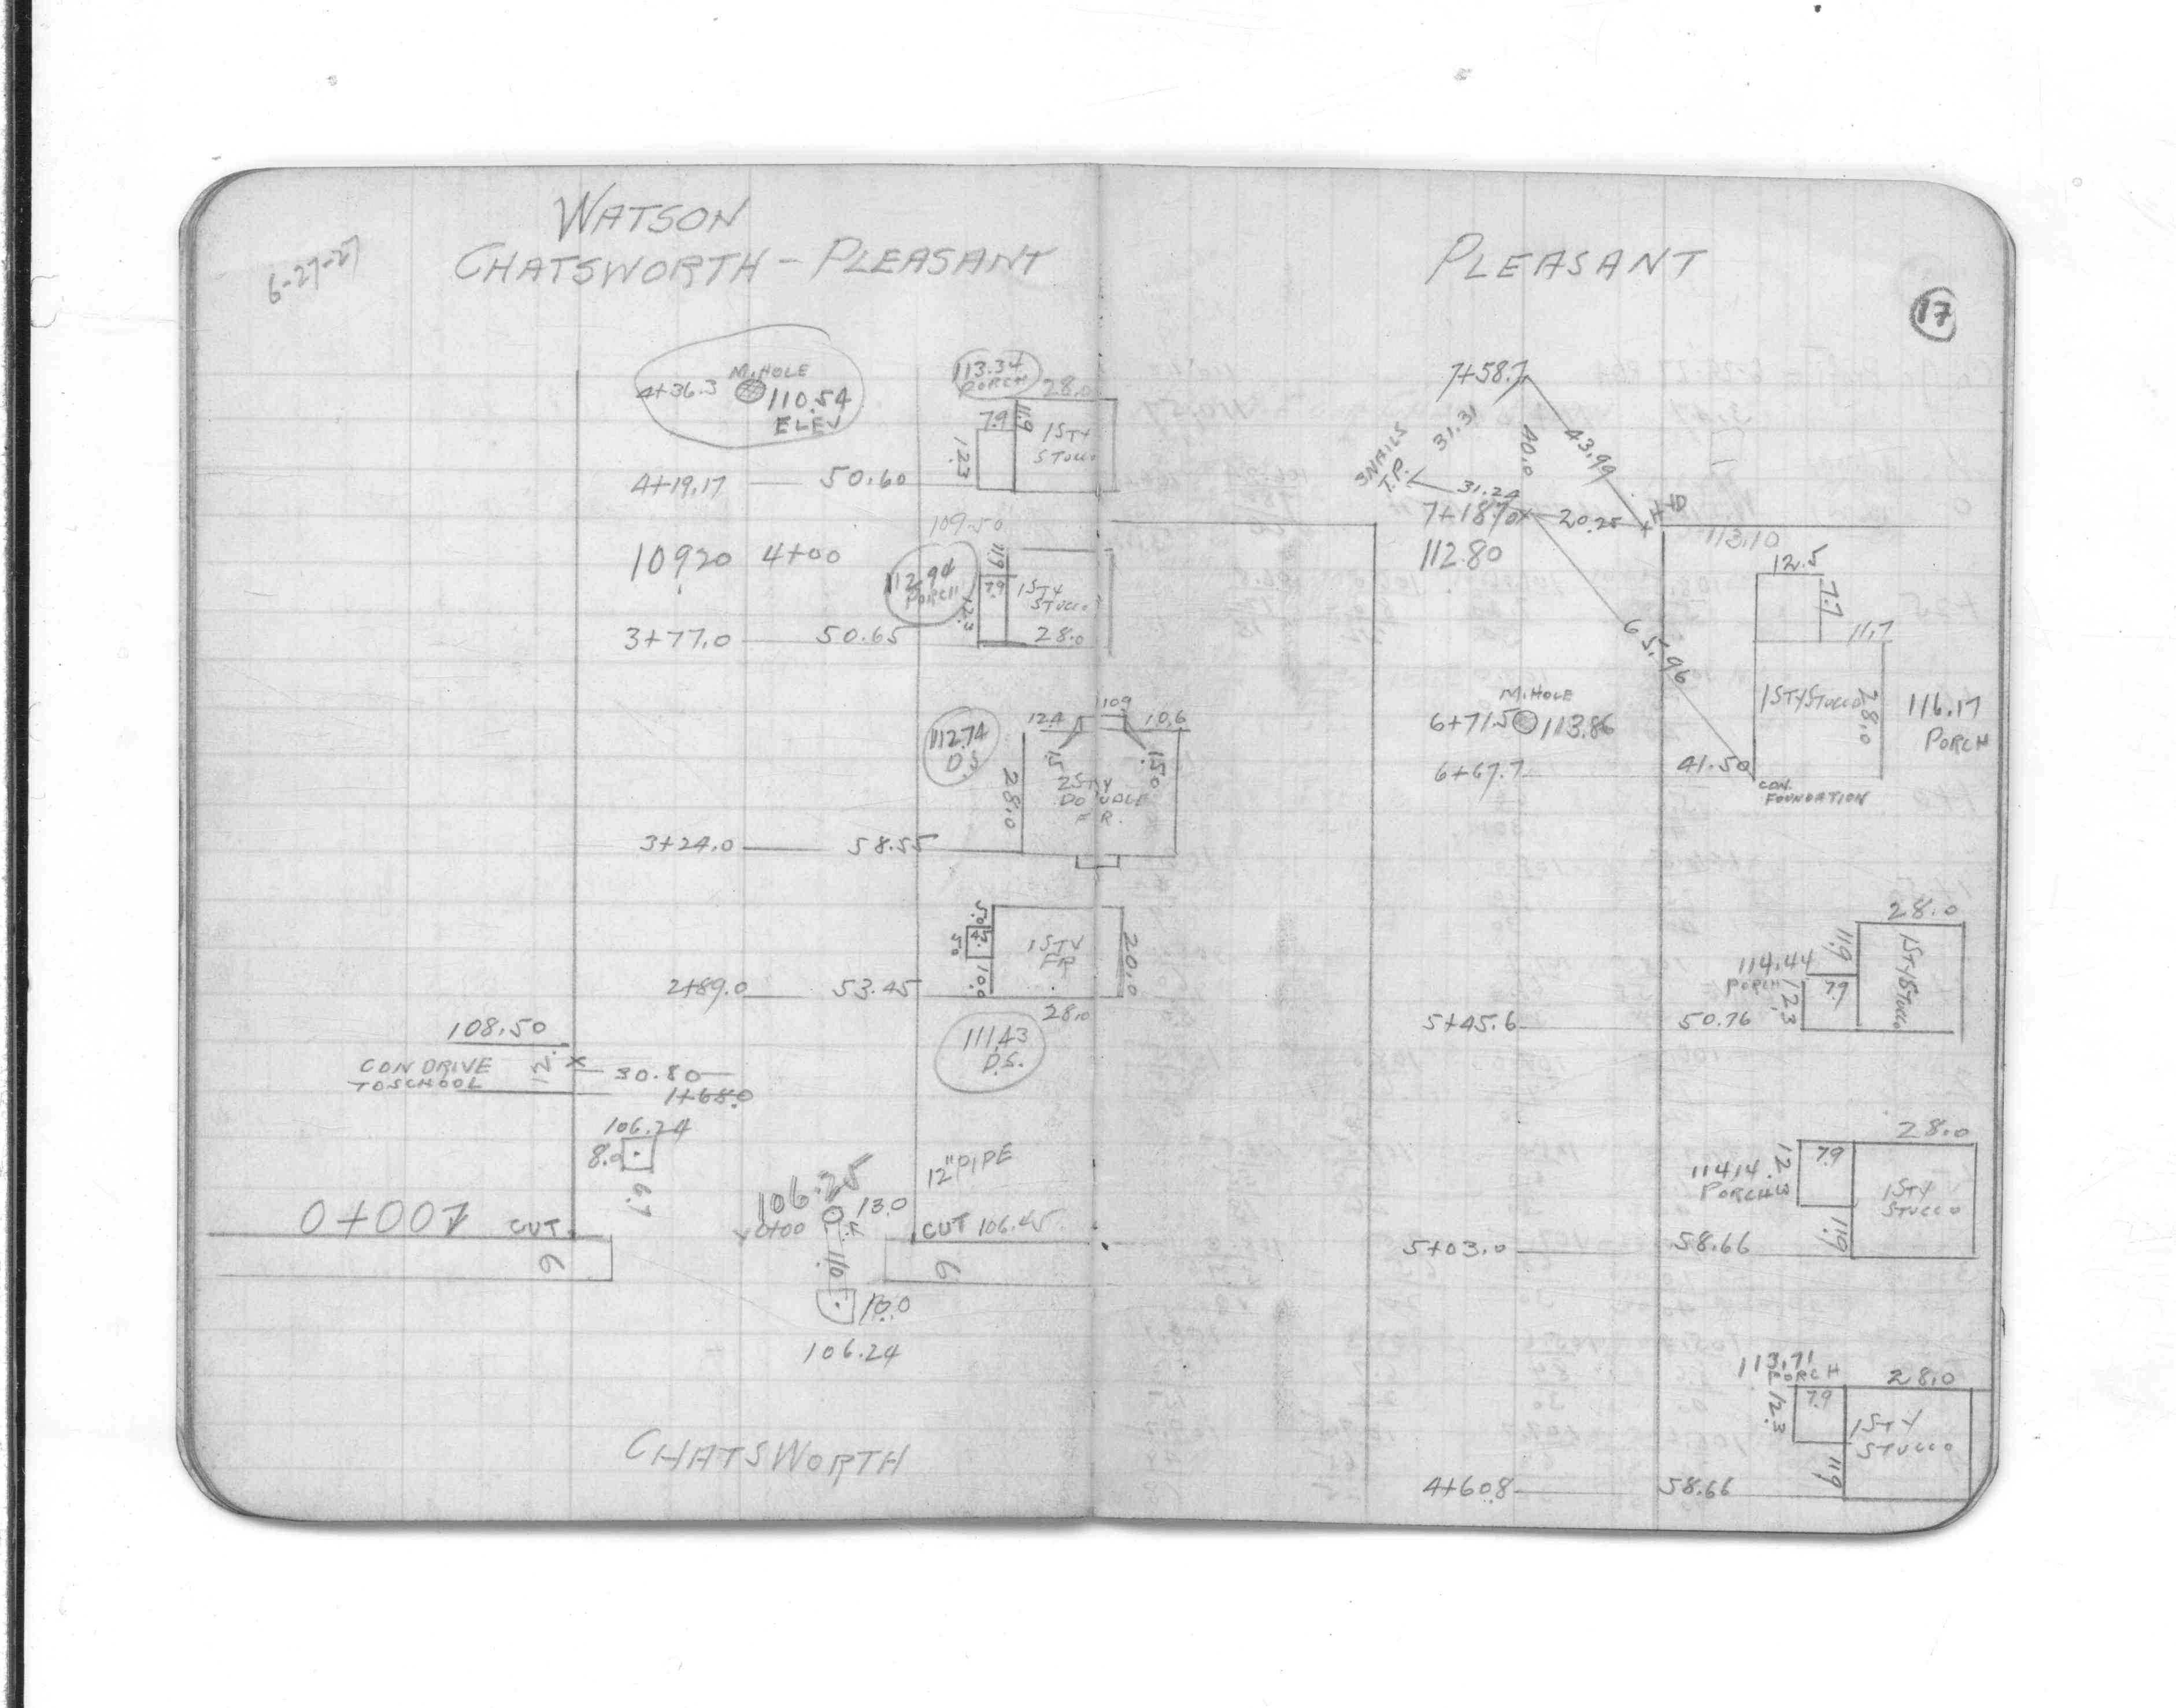 WATSON
6-27-27
CHATSWORTH - PLEASANT
M.HOLE
4+36.3
110.54
ELEV
113.34
PORCH
28.0
7.9
11.9
1 STY
STUCCO
12.3
4+19.17
50.60
109.50
10920 4+00
112.94
PORCH
11.9
7.9
12.3
1 STY
STUCCO
3+77.0
50.65
28.0
112.74
D.S.
12.4
10.9
10.6
1.5
15.0
28.0
2 STY
DOUBLE
FR.
3+24.0
58.55
5.0
4.2
5.0
10.0
1 STY
FR
20.0
2+89.0
53.45
28.0
111.43
D.S.
108.50
CON DRIVE
TO SCHOOL
12.
30.80
1+68.0
106.24
8.0
6.7
12" PIPE
106.25
13.0
0+00
0+001 CUT
CUT 106.45
6
11.0
6
10.0
106.24
CHATSWORTH
PLEASANT
17
7+58.7
31.31
40.0
43.99
3 NAILS
T.P.
31.24
7+18.70
20.25
H+D
112.80
113.10
12.5
7.7
11.7
65.96
M.HOLE
6+71.5
113.86
1 STY STUCCO
28.0
116.17
PORCH
6+67.7
41.50
CON.
FOUNDATION
28.0
11.9
114.44
PORCH
7.9
12.3
1 STY STUCCO
5+45.6
50.76
28.0
114.14
PORCH
12.3
7.9
1 STY
STUCCO
11.9
5+03.0
58.66
113.71
PORCH
28.0
7.9
12.3
1 STY
STUCCO
11.9
4+60.8
58.66